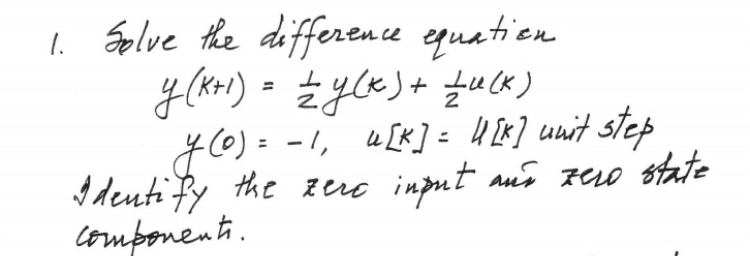 1. Solve the difference equation
y(k+1) = 1/2 y(k) + 1/2 u(k)
y(0) = -1, u[k] = U[k] unit step
Identify the zero input and zero state
components.